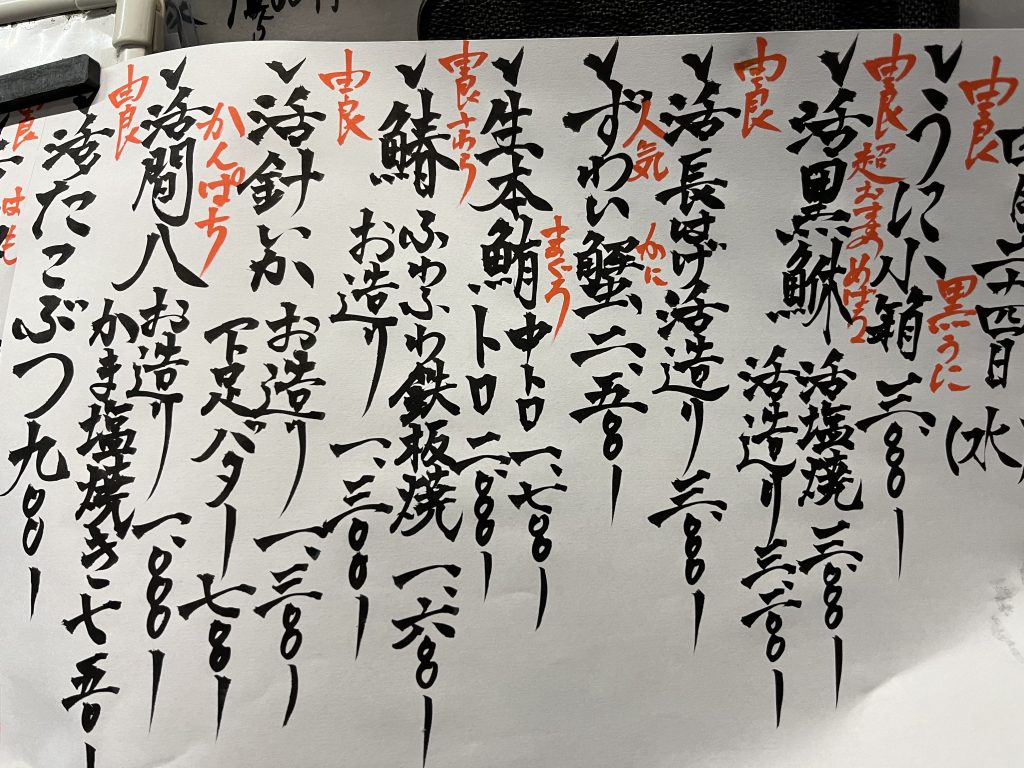 四月二十四日(水)
由良
黒うに
うに小箱 三、八〇〇ー
由良
超おすすめ
めばる
活黒鮴 活塩焼 三、三〇〇ー
活造り 三、三〇〇ー
由良
活長はげ活造り 三、八〇〇ー
人気
かに
ずわい蟹 二、五〇〇ー
まぐろ
生本鮪 中トロ 一、七〇〇ー
トロ 二、八〇〇ー
さわら
鰆 ふわふわ鉄板焼 一、六〇〇ー
お造り 一、三〇〇ー
由良
活針いか お造り 一、三〇〇ー
下足バター 七〇〇ー
かんぱち
由良
活間八 お造り 一、八〇〇ー
かま塩焼き 七五〇ー
活たこぶつ 九〇〇ー
良
はも